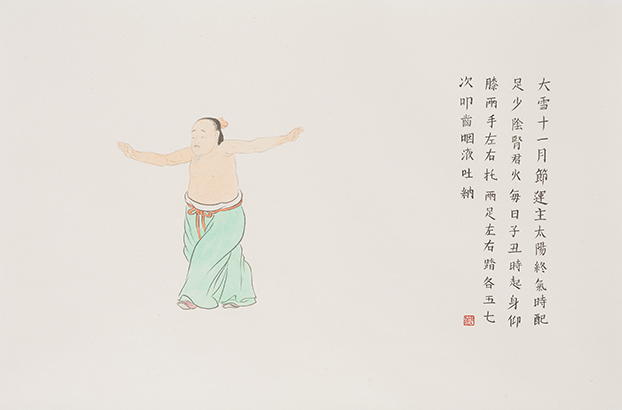 大雪十一月節運主太陽終氣時配
足少陰腎君火每日子丑時起身仰
膝兩手左右托兩足左右踏各五七
次叩齒咽液吐納